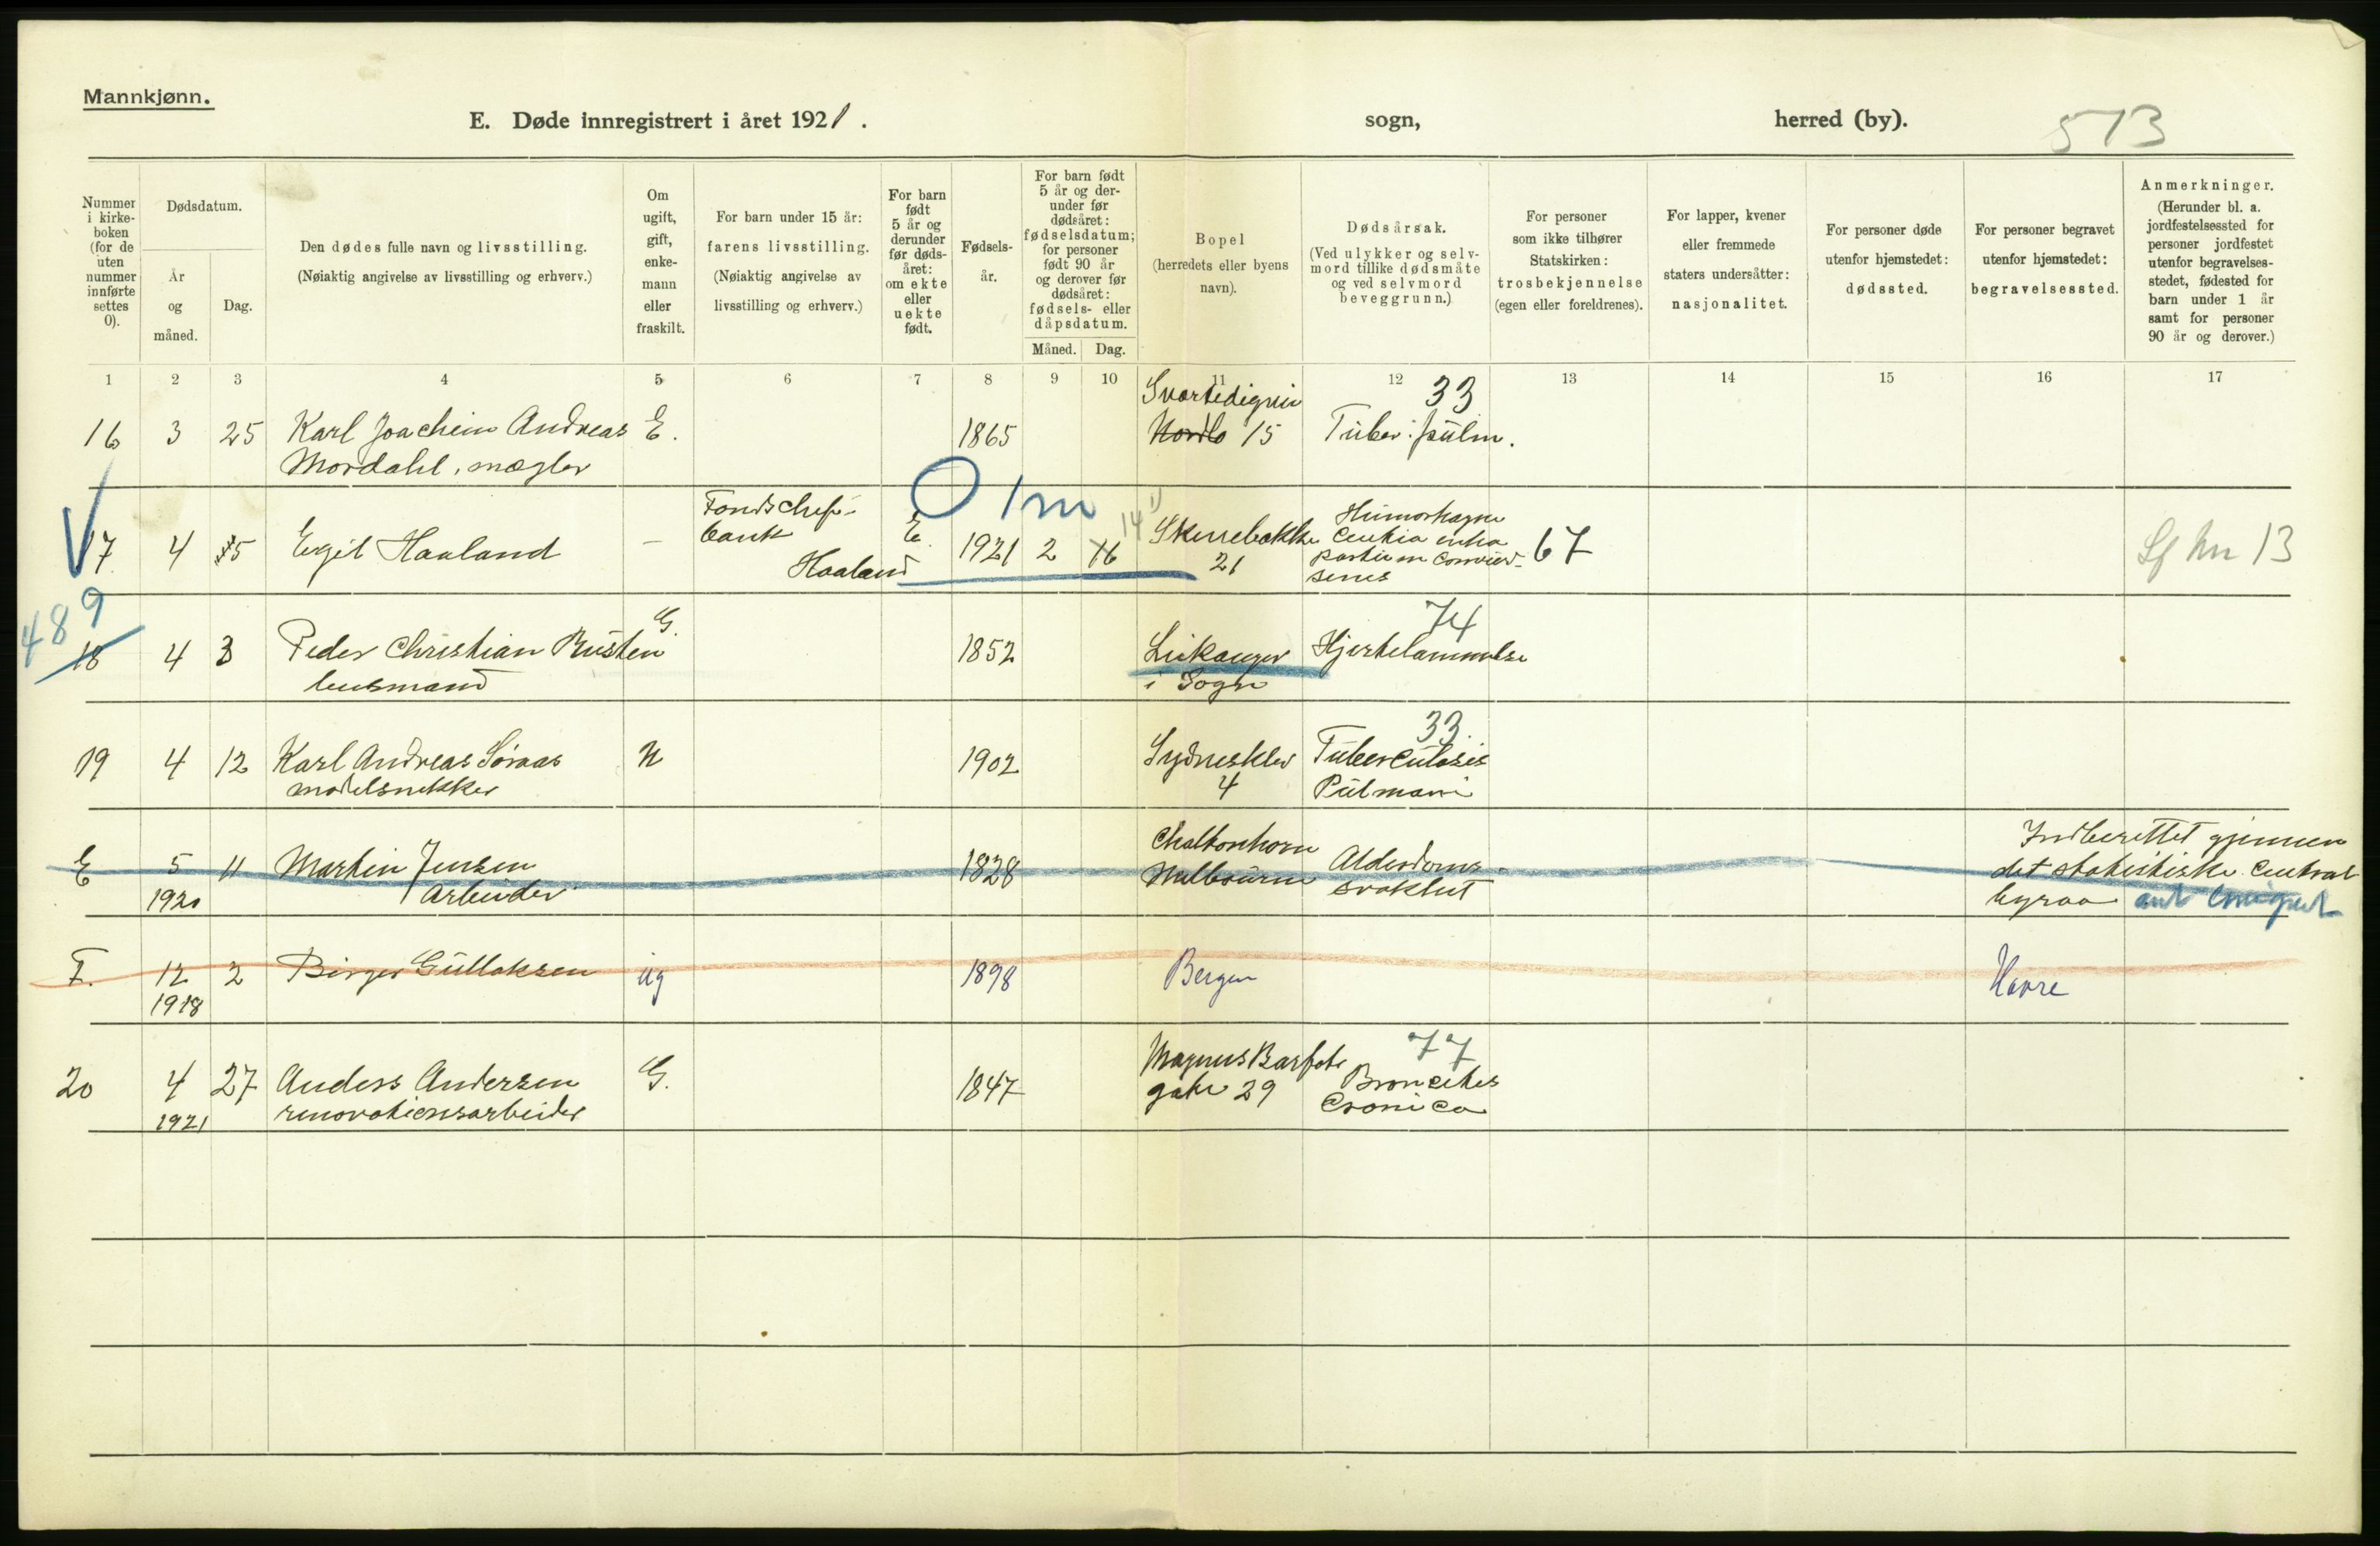 Mannkjønn.
E. Døde innregistrert i året 1921. sogn, herred (by). 513
Nummer i kirke-boken (for de uten nummer innførte settes 0).
Dødsdatum.
År og måned.
Dag.
Den dødes fulle navn og livsstilling.
(Nøiaktig angivelse av livsstilling og erhverv.)
Om ugift, gift, enke-mann eller fraskilt.
For barn under 15 år:
farens livsstilling.
(Nøiaktig angivelse av livsstilling og erhverv.)
For barn født 5 år og derunder før døds-året: om ekte eller uekte født.
Fødsels-år.
For barn født 5 år og der-under før dødsåret: fødselsdatum; for personer født 90 år og derover før dødsåret: fødsels- eller dåpsdatum.
Måned. Dag.
Bopel
(herredets eller byens navn).
Dødsårsak.
(Ved ulykker og selv-mord tillike dødsmåte og ved selvmord beveggrunn.)
For personer som ikke tilhører Statskirken: trosbekjennelse (egen eller foreldrenes).
For lapper, kvener eller fremmede staters undersåtter: nasjonalitet.
For personer døde utenfor hjemstedet: dødssted.
For personer begravet utenfor hjemstedet: begravelsessted.
Anmerkninger.
(Herunder bl. a. jordfestelsessted for personer jordfestet utenfor begravelses-stedet, fødested for barn under 1 år samt for personer 90 år og derover.)
1 2 3 4 5 6 7 8 9 10 11 12 13 14 15 16 17
33
16 3 25 Karl Joachim Andreas E. 1865 15 Tuber. pulm.
Mordahl, mægler
O 1 m
17 4 5 Egil Haaland — bank Haaland E. 1921 2 16 14 21 67 13
489
18 4 3 Peder Christian Rusten G. 1852 Leikanger Hjertelammelse 74
lensmand i Sogn
33.
19 4 12 Karl Andreas Søraas U 1902 Sydnesklev Tuberculosis
modelsnekker 4 Pulmani
E 5 11 Martin Jensen 1828 Melbourne Alderdoms- Indberettet gjennem
1920 Arbeider svakhet det statistiske Central
byraa
F. 12 2 Birger Gullaksen ug 1898 Bergen Havre
1918
77
20 4 27 Anders Andersen G. 1847 Magnus Barfots Broncitis
1921 renovationsarbeider gate 29 Cronica